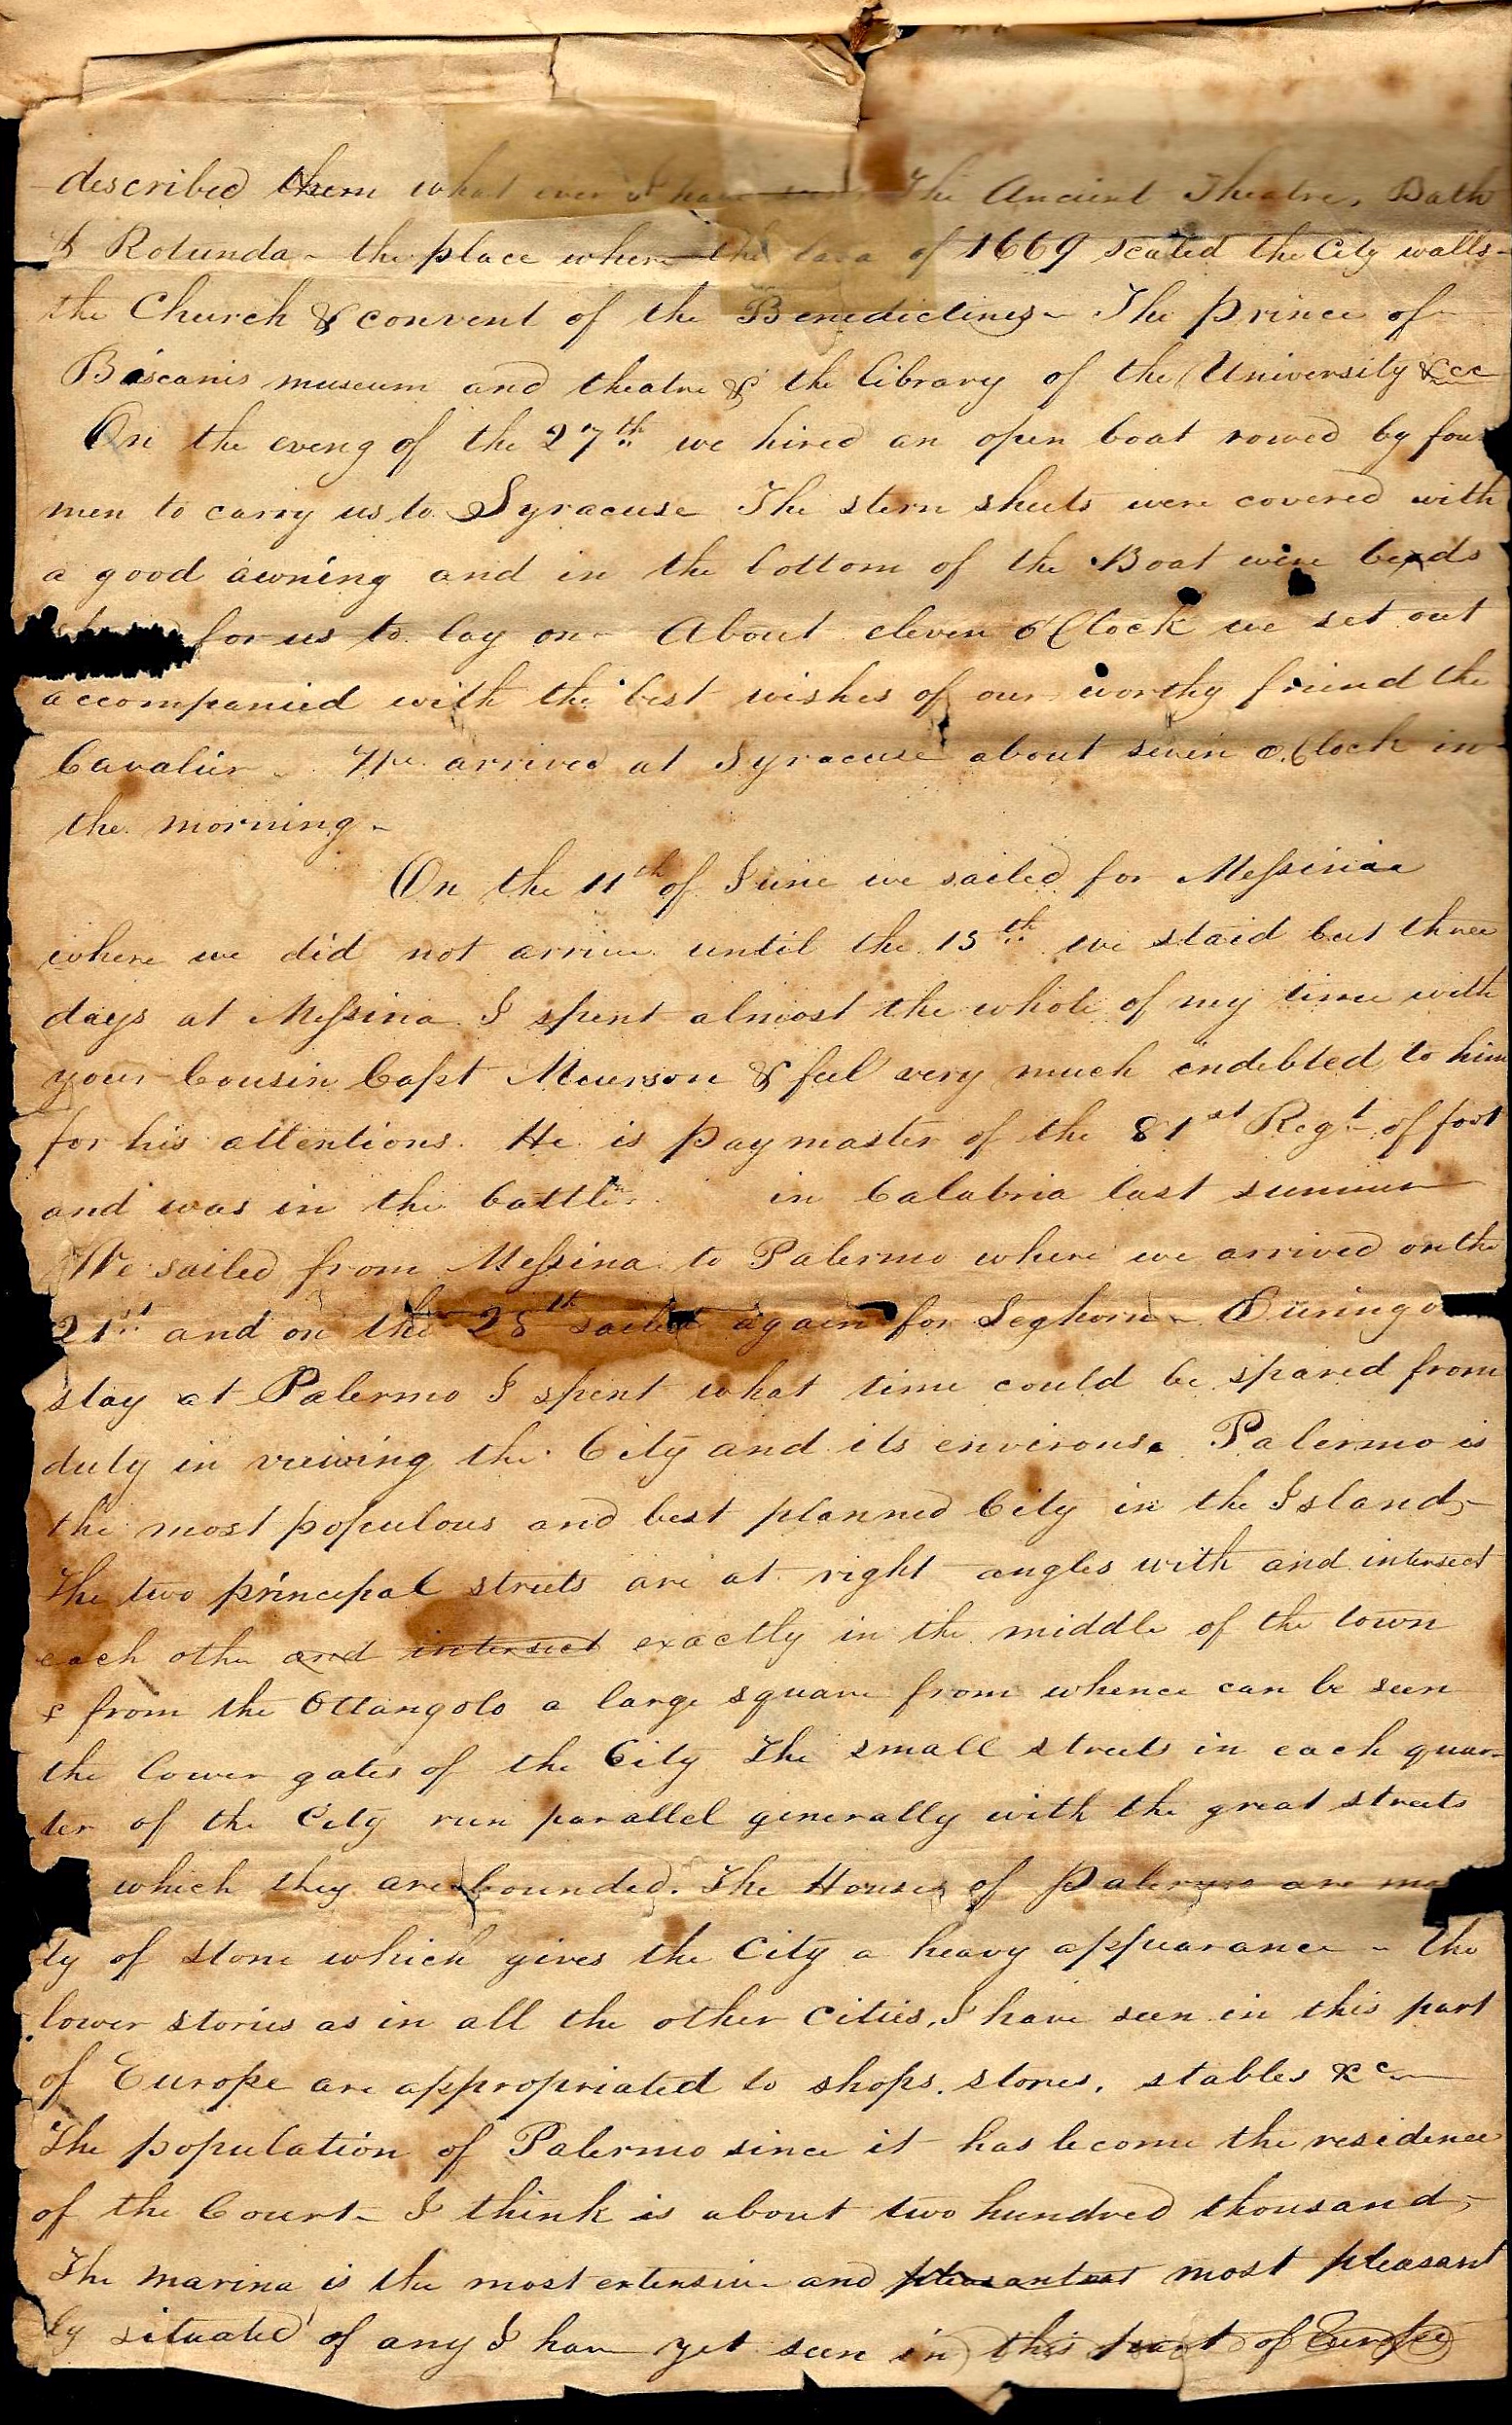 described them what ever I have seen The Ancient Theatre, Bath
& Rotunda - the place where the lava of 1669 scaled the City walls -
the Church & convent of the Benedictines - The Prince of
Biscaris museum and theatre & the Library of the University &cc
On the eveng of the 27th we hired an open boat rowed by four
men to carry us to Syracuse The stern sheets were covered with
a good awning and in the bottom of the Boat were beds
for us to lay on - About eleven o'Clock we set out
accompanied with the best wishes of our worthy friend the
Cavalier - We arrived at Syracuse about seven o.Clock in
the morning -
On the 11th of June we sailed for Messina
where we did not arrive until the 15th we staid but three
days at Messina I spent almost the whole of my time with
your Cousin Capt Mourson & feel very much indebted to him
for his attentions. He is paymaster of the 81st Regt. of foot
and was in the battle in Calabria last summer
We sailed from Messina to Palermo where we arrived on the
21st and on the 28th sailed again for Leghorn - During o
stay at Palermo I spent what time could be spared from
duty in viewing the City and its environs. Palermo is
the most populous and best planned City in the Island -
The two principal streets are at right angles with and intersect
each other and intersect exactly in the middle of the town
& from the Ottangolo a large square from whence can be seen
the lower gates of the City The small streets in each quar-
ter of the City run parallel generally with the great streets
which they are bounded. The Houses of Palermo are mos
ty of stone which gives the City a heavy appearance - the
lower stories as in all the other Cities, I have seen in this part
of Europe are appropriated to shops, stores, stables &c -
The population of Palermo since it has become the residence
of the Court - I think is about two hundred thousand, -
The marina is the most extensive and pleasantest most pleasant
ly situated of any I have yet seen in this part of Europe